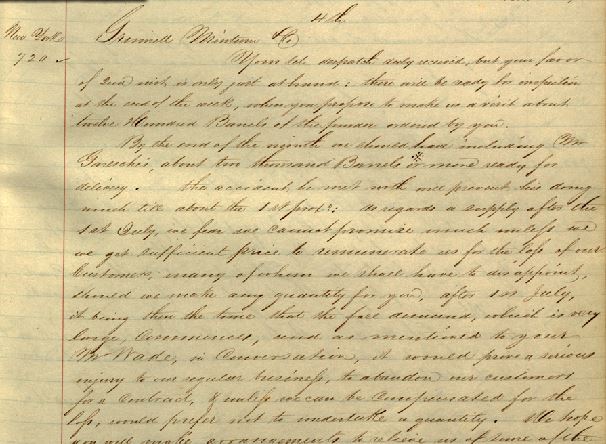 4th
New York
720
Grinnell Minturn & Co
Your tel. despatch duly received, but your favor
of 2nd inst. is only just at hand: there will be ready for inspection
at the end of the week, when you propose to make us a visit about
twelve Hundred Barrels of the powder ordered by you.
By the end of the month we should have including Mr
Garesché's, about ten thousand Barrels or more ready for
delivery. The accident he met with will prevent his doing
much till about the 1st prox: As regards a supply after the
1st July, we fear we cannot promise much unless we
we get sufficient price to remunerate us for the loss of our
Customers, many of whom we shall have to disappoint,
should we make any quantity for you, after 1st July,
it being then the time that the fall demand, which is very
large, commences, and as mentioned to your
Mr Wade, in Conversation, it would prove a serious
injury to our regular business, to abandon our customers
for a Contract, & unless we can be Compensated for the
loss, would prefer not to undertake a quantity. We hope
you will make arrangements to relieve us of some of the